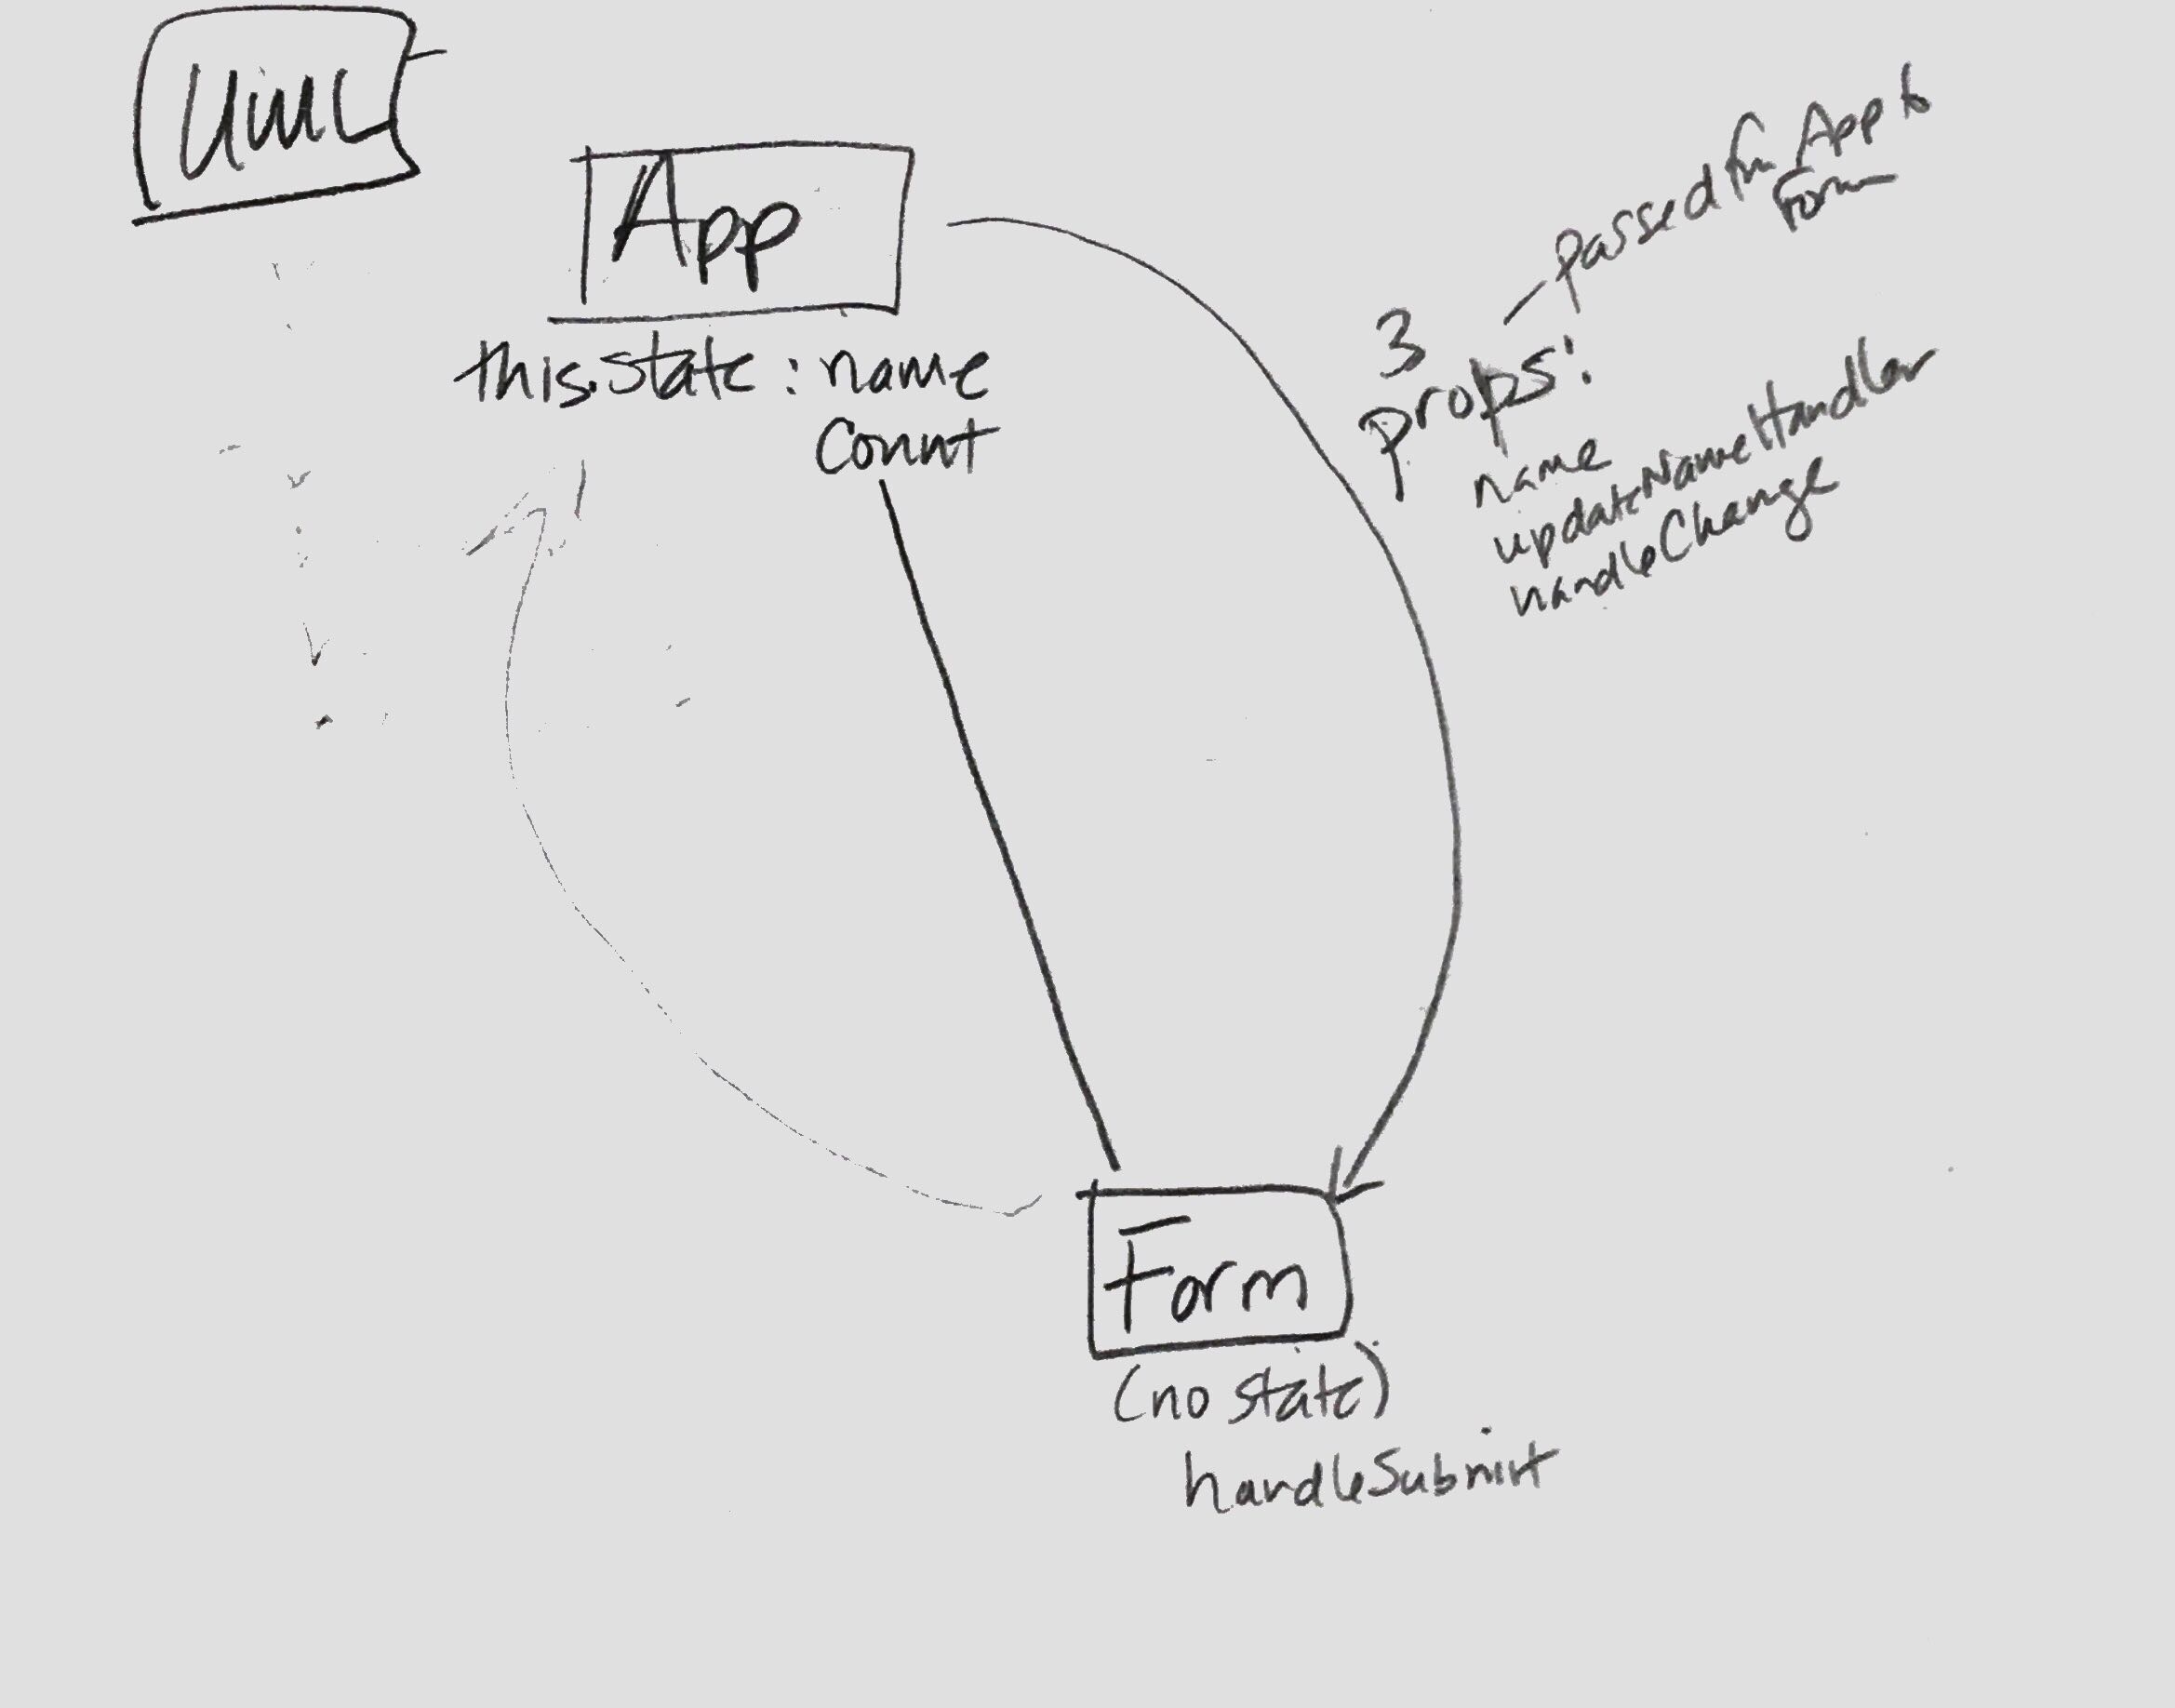 UML
App
this.state: name
Count
3
props:
– passed fm App to
Form
name
updateNameHandler
handleChange
Form
(no state)
handleSubmit